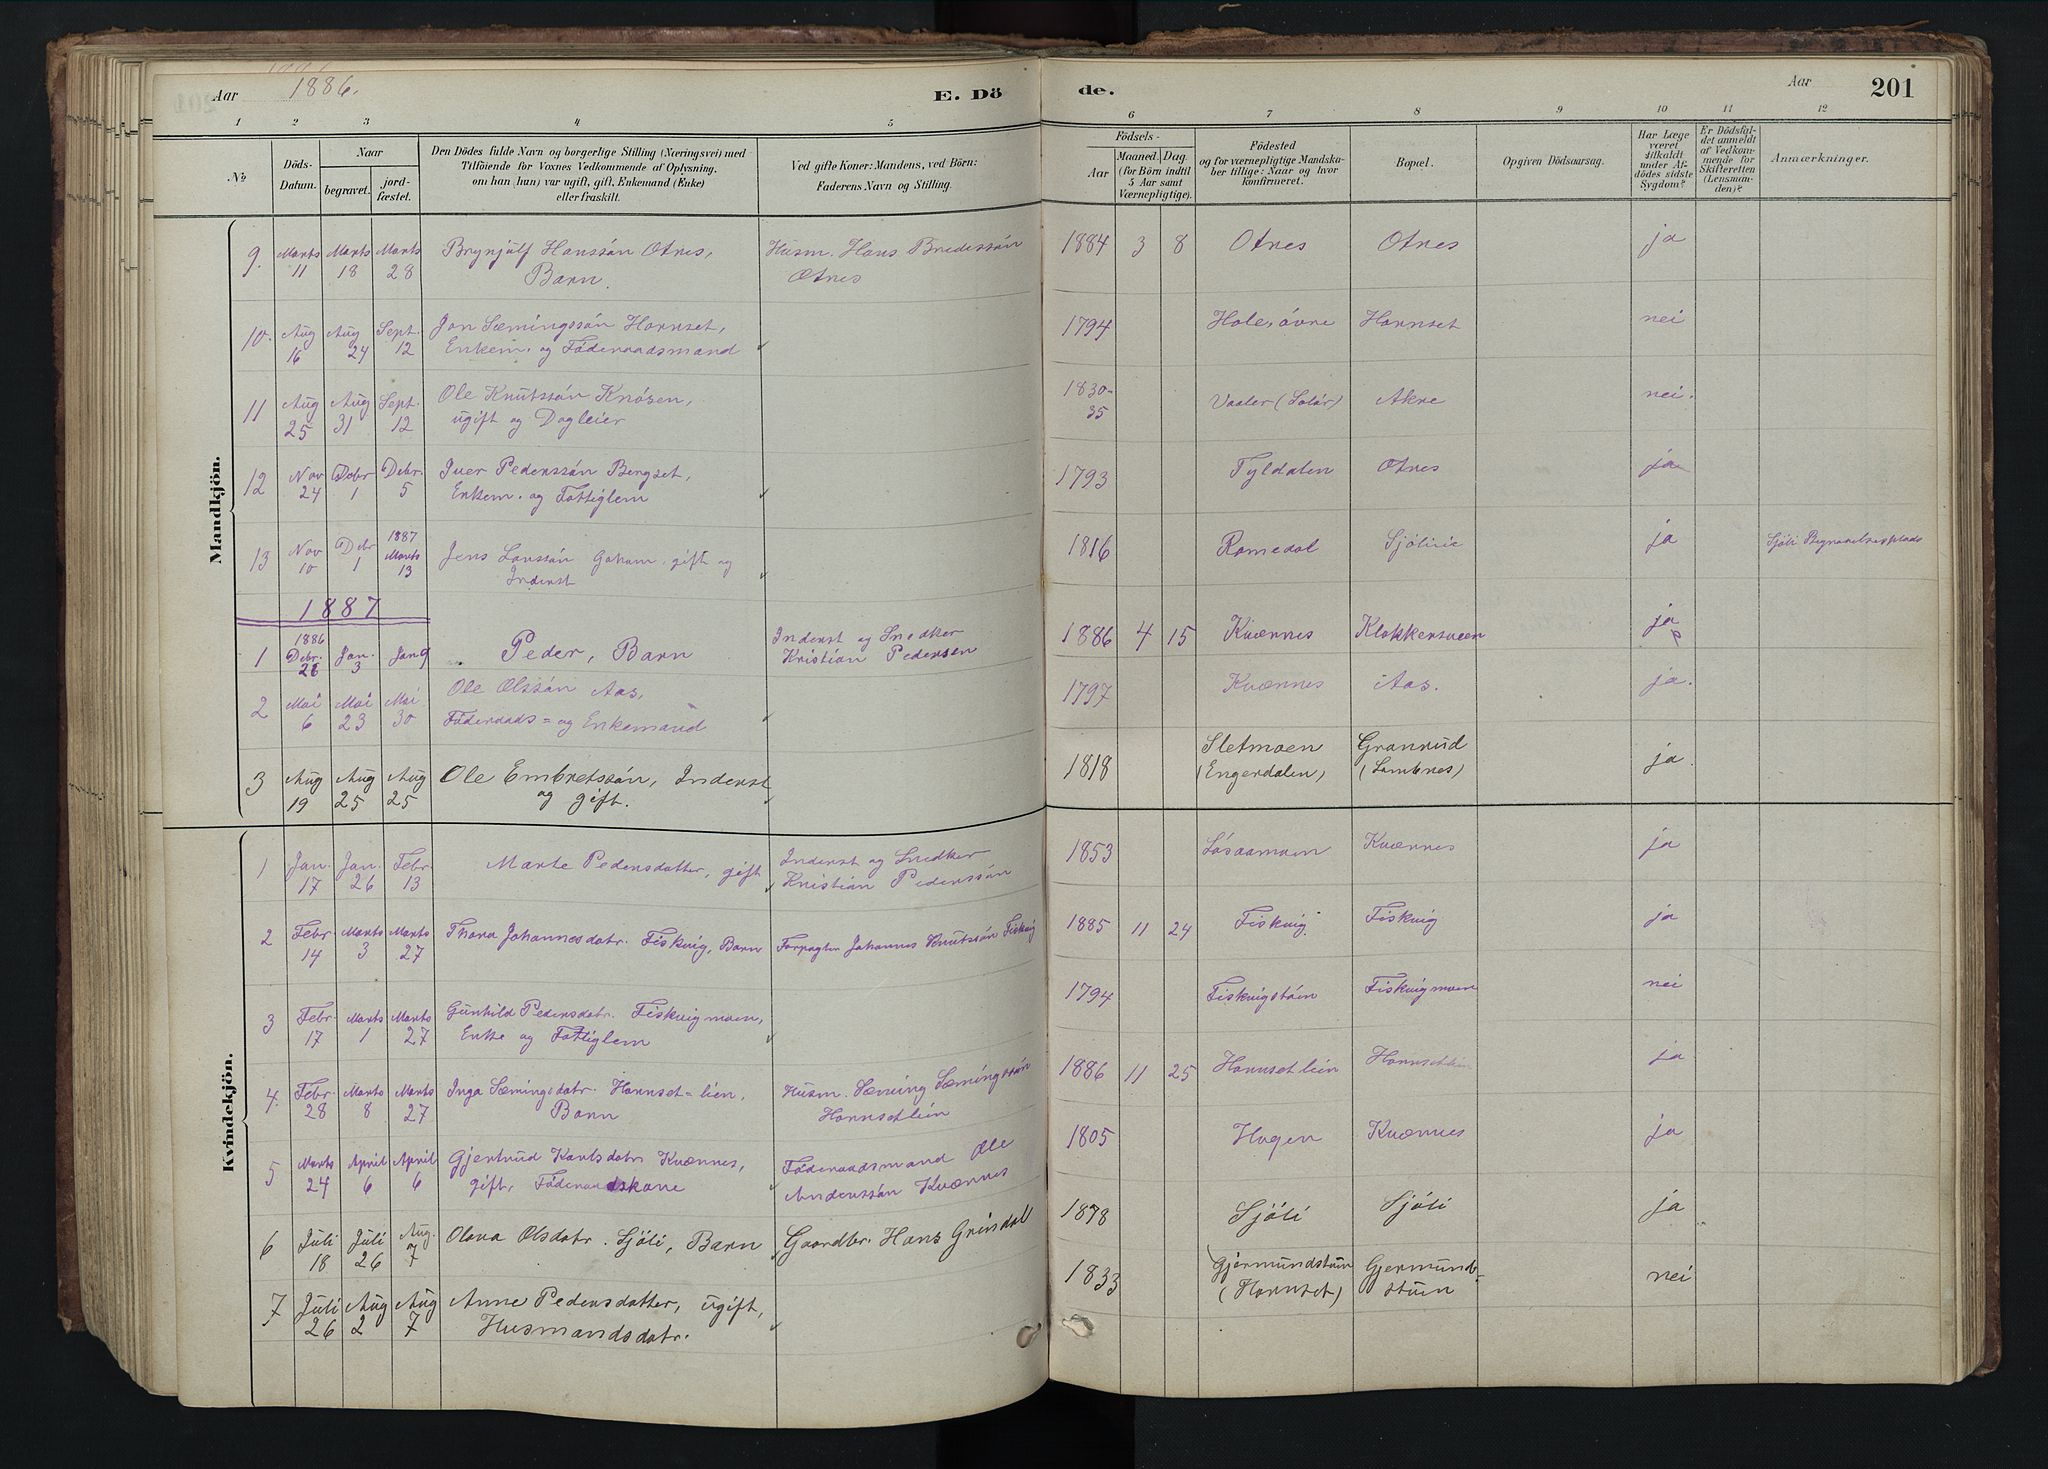 Aar 1886.
E. Dö
de.
Aar
201
1 2 3 4 5 6 7 8 9 10 11 12
No
Döds-Datum.
Naar
begravet.
jord-fæstet.
Den Dödes fulde Navn og borgerlige Stilling (Næringsvei) med
Tilföiende for Voxnes Vedkommende af Oplysning,
om han (hun) var ugift, gift, Enkemand (Enke)
eller fraskilt.
Ved gifte Koner: Mandens, ved Börn:
Faderens Navn og Stilling.
Födsels-
Aar
Maaned. Dag.
(for Börn indtil
5 Aar samt
Værnepligtige).
Födested
og for værnepligtige Mandska-
ber tillige: Naar og hvor
konfirmeret.
Bopæl.
Opgiven Dödsaarsag.
Har Læge
været
tilkaldt
under Af-
dödes sidste
Sygdom?
Er Dödsfal-
det anmeldt
af Vedkom-
mende for
Skifteretten
(Lensman-
den)?
Anmærkninger.
Mandkjön.
9. Marts 11 Marts 18 Marts 28 Brynjulf Hanssön Otnes, Barn. Husm. Hans Bredessön Otnes 1884 3 8 Otnes Otnes ja
10. Aug 16 Aug 24 Sept. 12 Jon Sæmingssön Hornset, Enkem. og Föderaadsmand 1794 Hole, övre Hornset nei
11 Aug 25 Aug 31 Sept. 12 Ole Knutssön Knösen, ugift og Dagleier 1830-35 Vaaler (Solör) Akre nei.
12 Nov 24 Debr 1 Debr. 5 Iver Pederssön Bergset, Enkem. og Fattiglem 1793 Tyldalen Otnes ja
13 Nov 10 Debr 1 1887 Marts 13 Jens Larssön gift og Inderst 1816 Romedal Sjölie ja Sjöli Begravelsesplads
1887
1 1886 Debr. Jan. 3 Jan 9 Peder, Barn Inderst og Snedker Kristian Pedersen 1886 4 15 Kværnes Klokkersveen ja
2 Mai 6 Mai 23 Mai 30 Ole Olssön Aas, Föderaads- og Enkemand 1797 Kværnes Aas. ja.
3 Aug 19 Aug 25 Aug 25 Ole Embretssön, Inderst og gift. 1818 Sletmoen (Engerdalen) Granrud (Lombnes) ja.
Kvindekjön.
1 Jan. 17 Jan. 26 Febr 13 Marte Pedersdatter, gift Inderst og Snedker Kristian Pederssön 1853 Lösaamoen Kværnes ja
2 Febr 14 Marts 3 Marts 27 Thora Johannesdatr. Fiskvig, Barn Forpagter Johannes Knutssön Fiskvig 1885 11 24 Fiskvig Fiskvig ja
3 Febr. 17 Marts 1 Marts 27 Gunhild Pedersdatr. Fiskvigmoen, Enke og Fattiglem 1794 Fiskvigstöen Fiskvigmoen nei
4. Febr 28 Marts 8 Marts 27 Inga Sæmingsdatr. Hornset-lien, Barn Husm. Sæming Sæmingssön Hornsetlien 1886 11 25 Hornsetlien Hornsetlien ja
5 Marts 24 April 6 April 6 Gjertrud Karlsdatr Kværnes, gift, Föderaadskone Föderaadsmand Ole Anderssön Kværnes 1805 Hagen Kværnes ja
6 Juli 18 Juli 26 Aug. 7 Olava Olsdatr. Sjöli, Barn Gaardbr. Hans Grindal 1878 Sjöli Sjöli ja
7 Juli 26 Aug 2 Aug 7 Anne Pedersdatter, ugift, Husmandsdatr. 1833 Gjermundstuen (Hornset) Gjermund-stuen nei